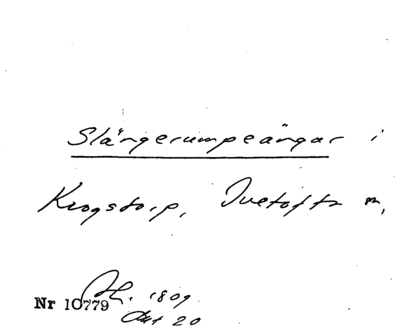 Slängerumpeängar i
Krogstorp, Ivetofta m,
Nr 10779
1809
Akt 20